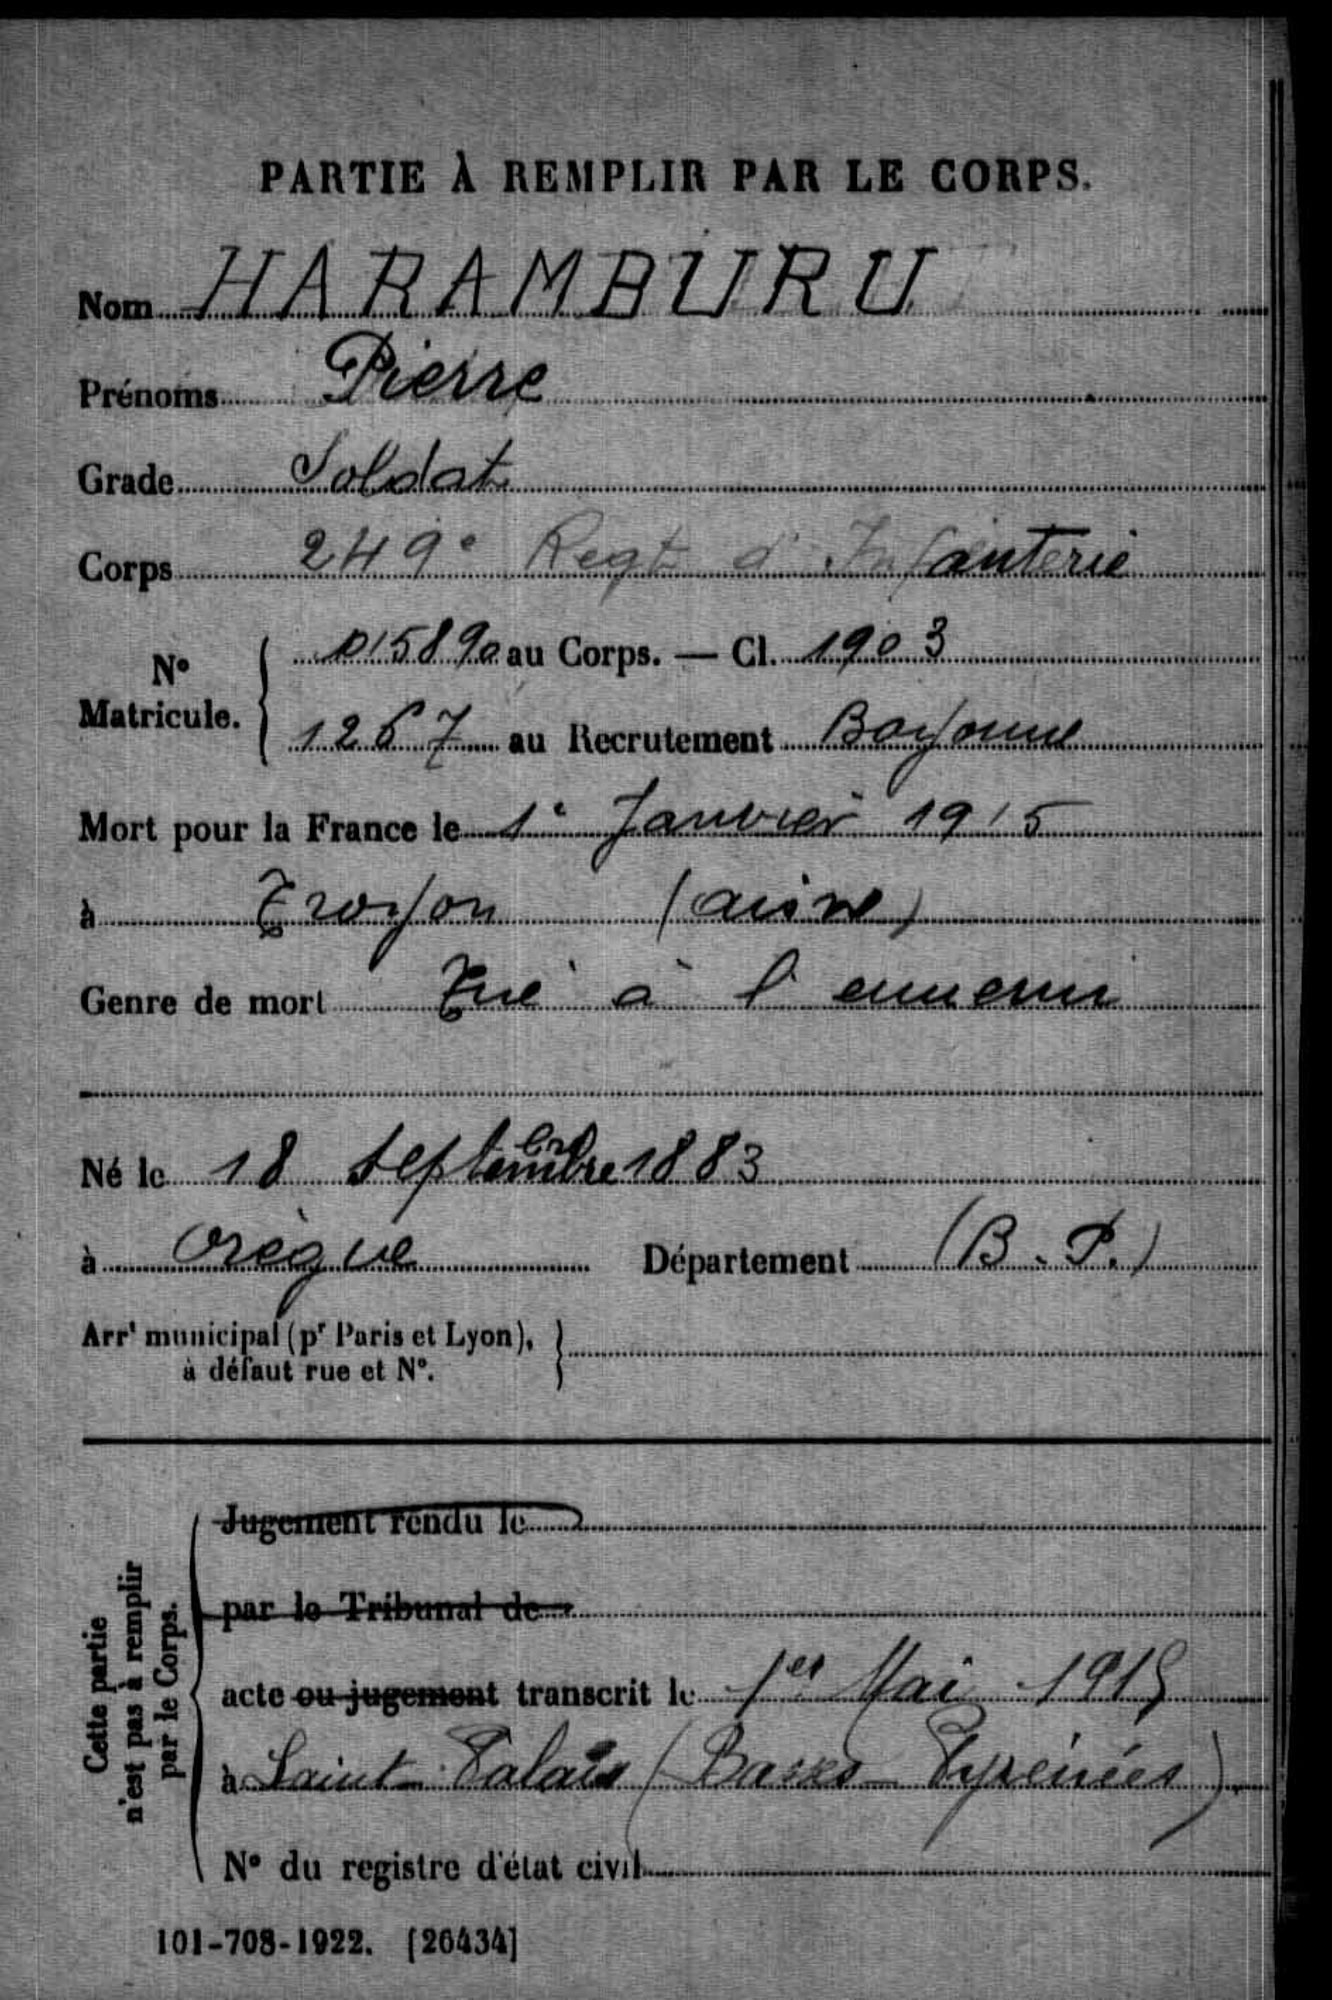 PARTIE À REMPLIR PAR LE CORPS.
Nom HARAMBURU
Prénoms Pierre
Grade Soldat
Corps 249e Regt d'Infanterie
N° Matricule.
015890 au Corps. — Cl. 1903
1267 au Recrutement Bayonne
Mort pour la France le 1e Janvier 1915
à Troyon (aisne)
Genre de mort Tué à l'ennemi
Né le 18 Septembre 1883
à Orègue Département (B. P.)
Arrt municipal (pr Paris et Lyon),
à défaut rue et N°.
Cette partie
n'est pas à remplir
par le Corps.
Jugement rendu le
par le Tribunal de
acte ou jugement transcrit le 1er Mai 1915
à Saint-Palais (Basses Pyrénées).
N° du registre d'état civil
101-708-1922. [26434]